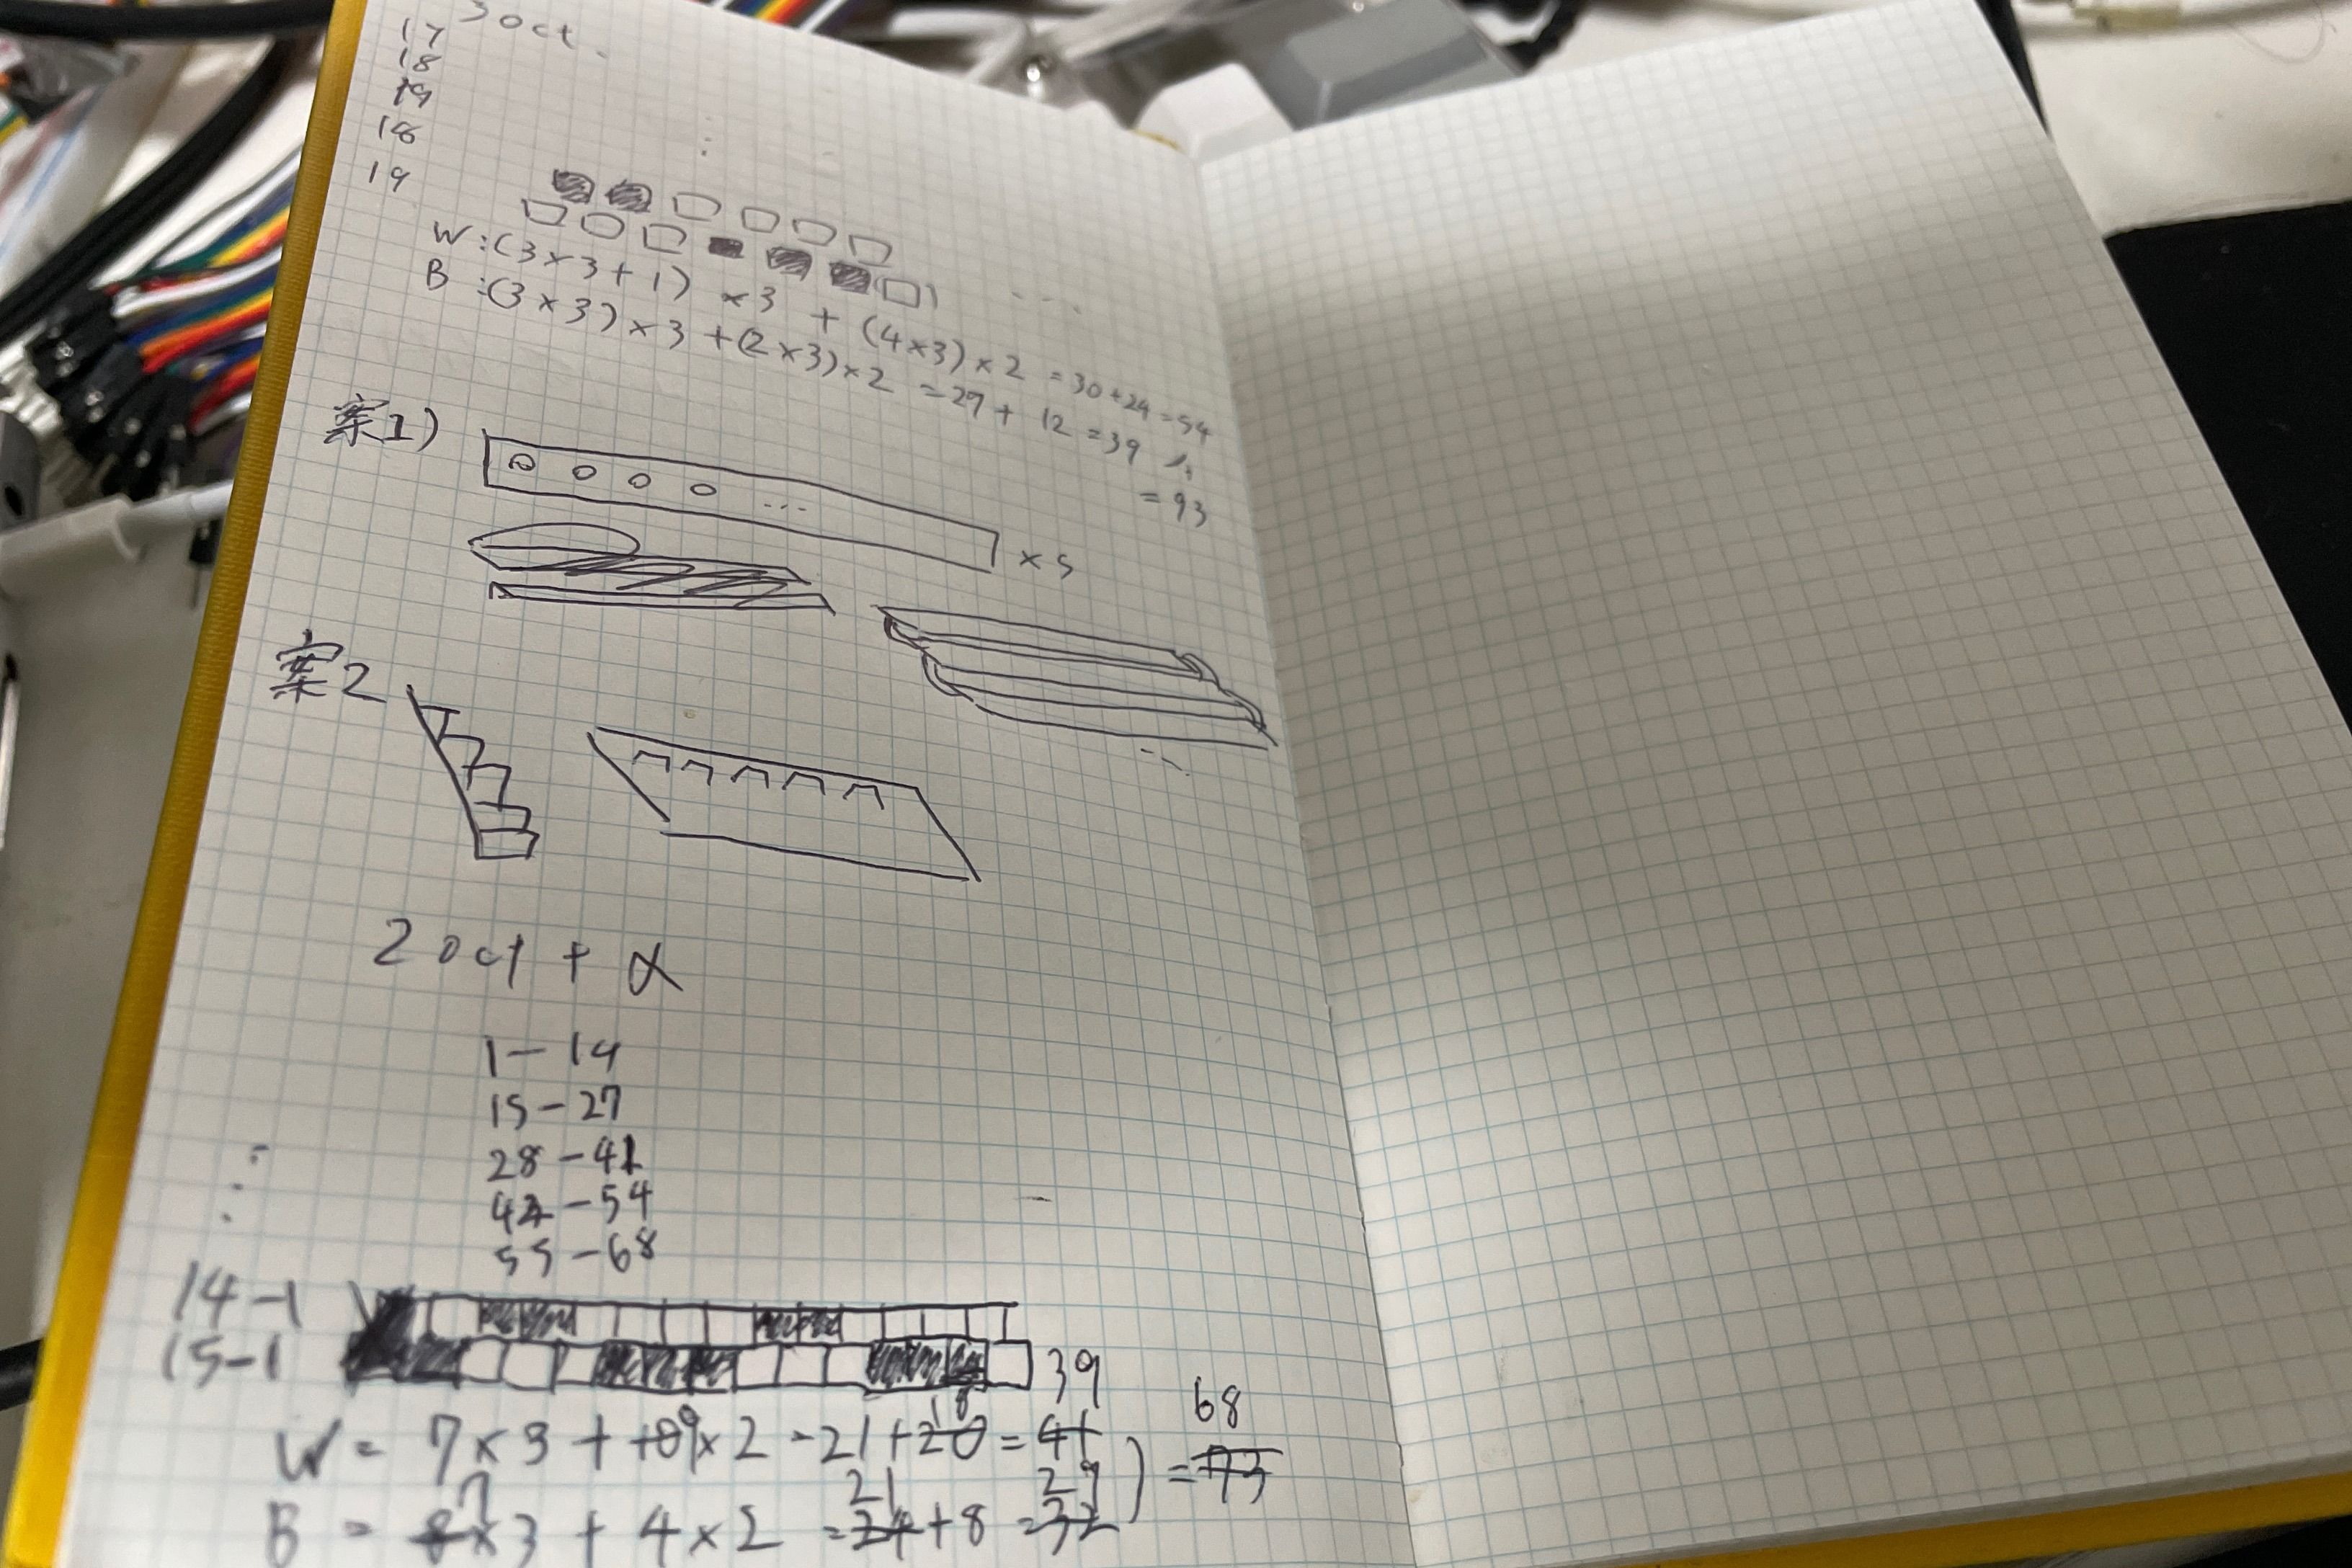 3 oct.
17
18
19
18
19
W:(3×3+1) ×3 + (4×3)×2 =30+24=54
B:(3×3)×3+(2×3)×2 =27+ 12 =39
=93
案1)
×5
案2
2 oct + α
1-14
15-27
28-41
42-54
55-68
14-1
15-1
39
18
68
W = 7×3 + 109×2 = 21+20 = 41
7
21
29
) = 73
B = 8×3 + 4×2 = 24+8 = 32